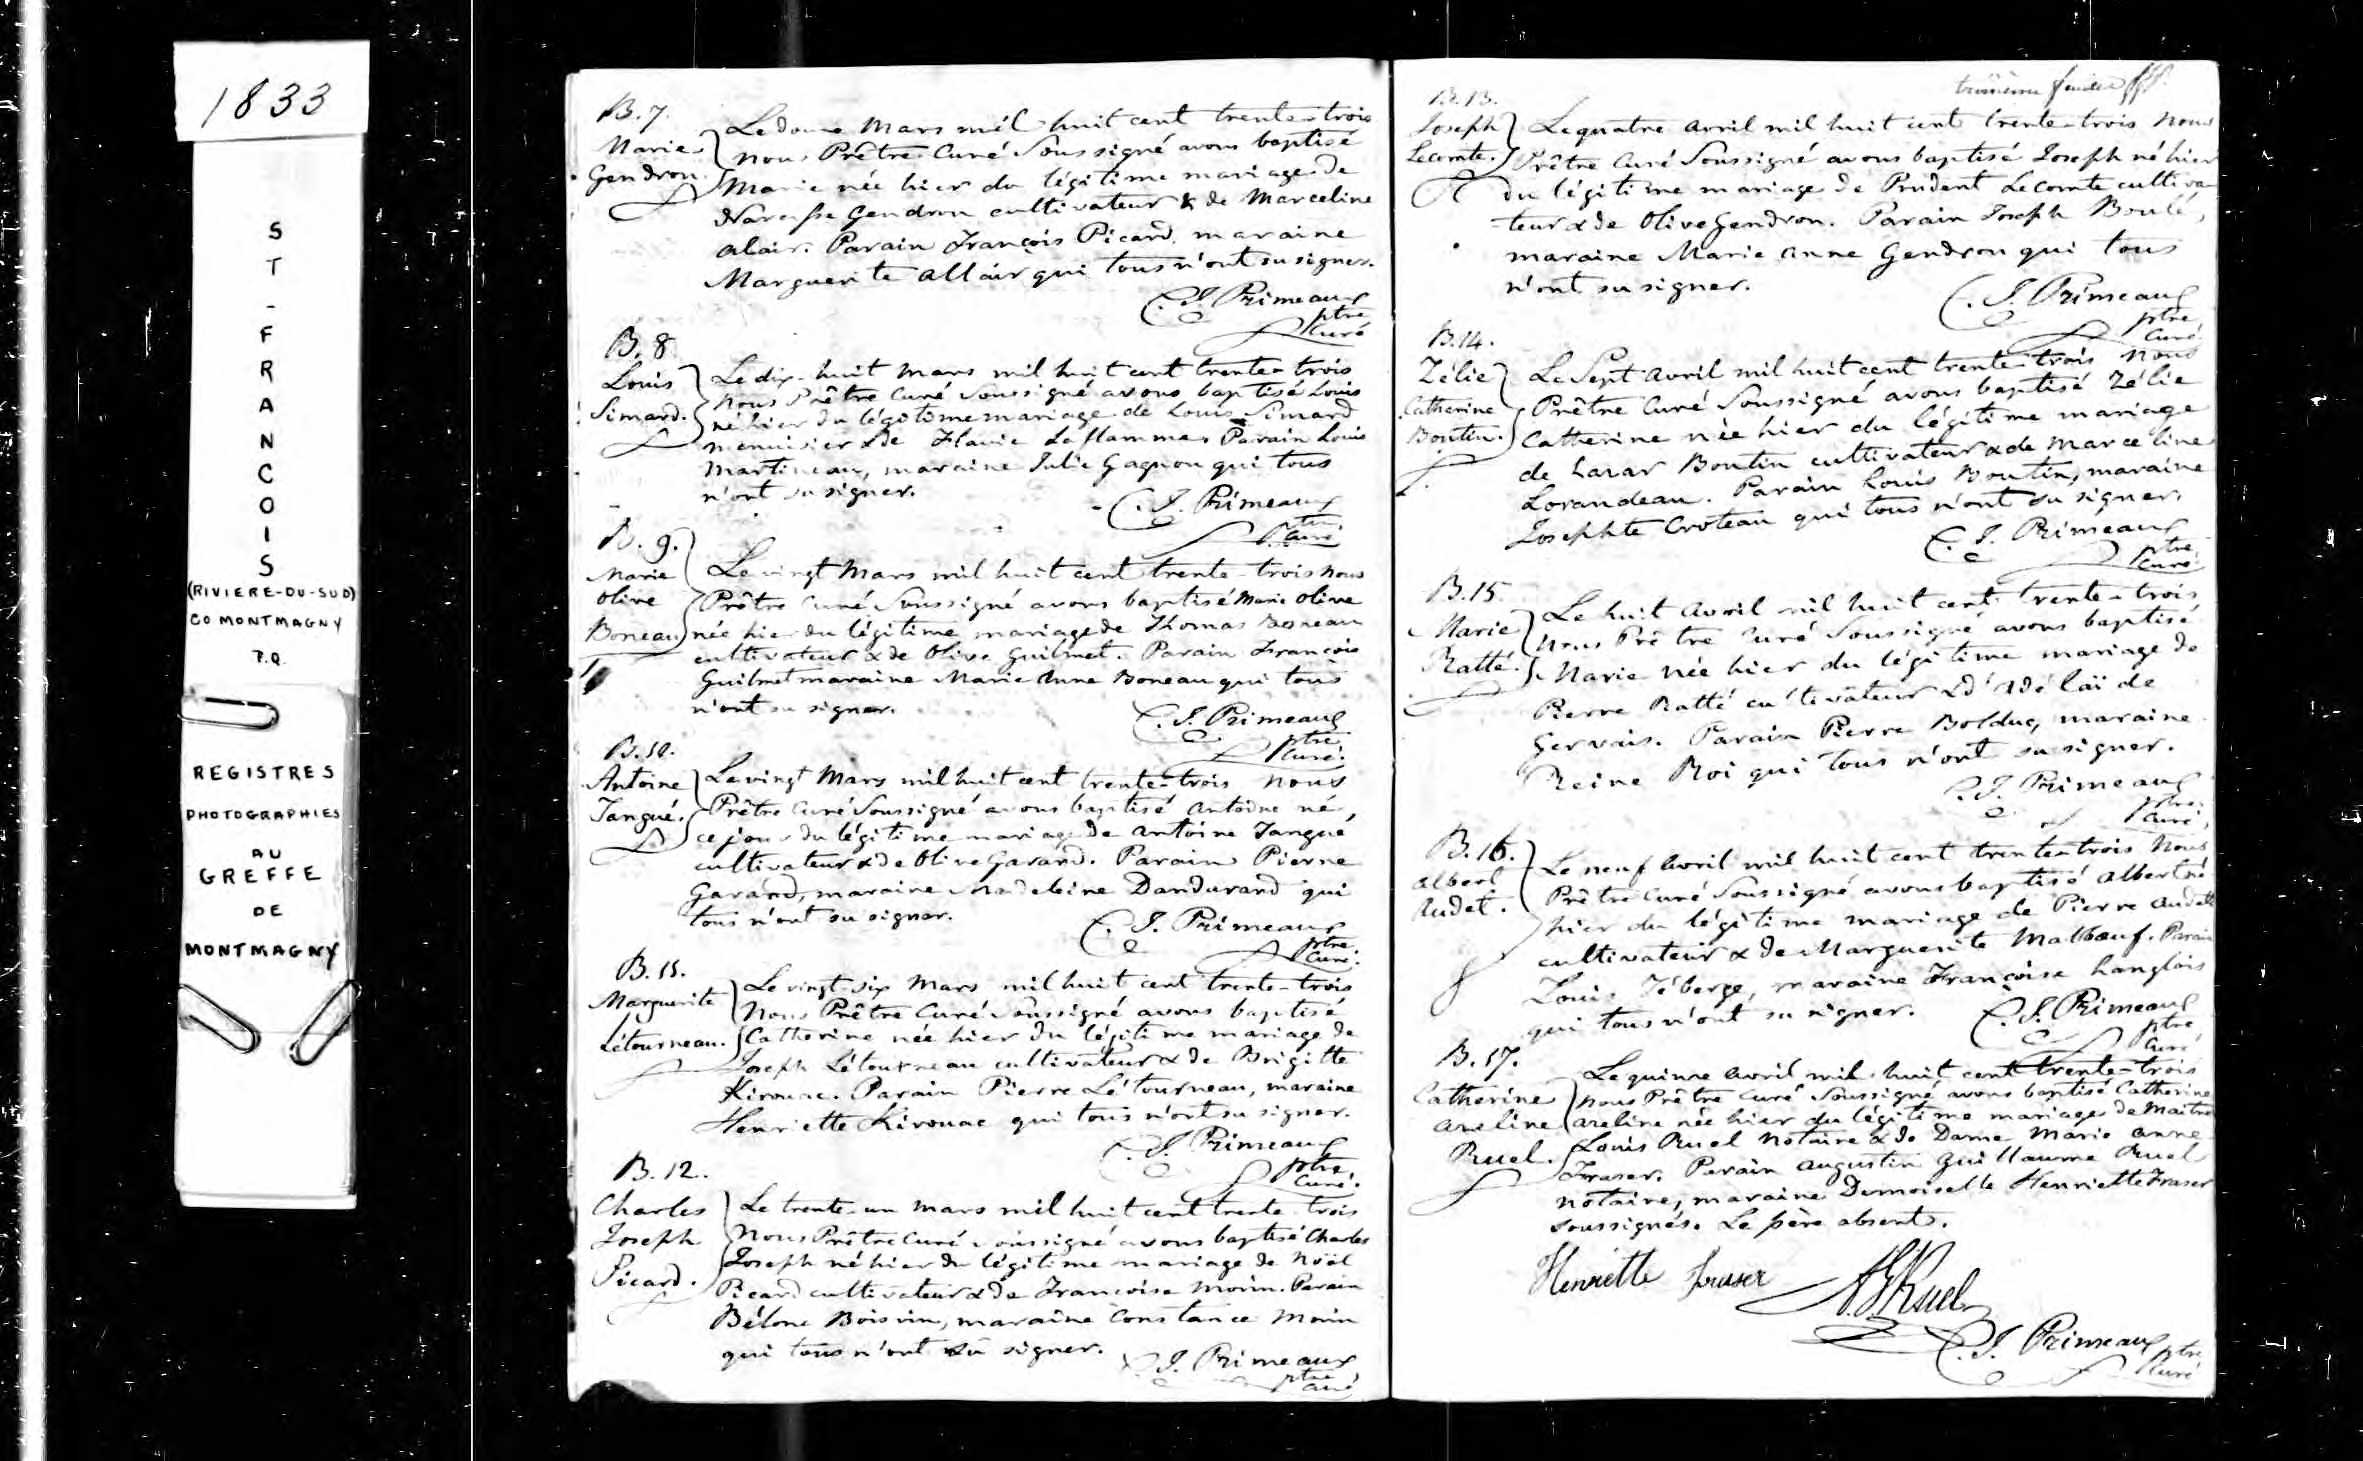 1833
ST-FRANCOIS
(RIVIERE-DU-SUD)
CO MONTMAGNY
P.Q.
REGISTRES
PHOTOGRAPHIES
AU
GREFFE
DE
MONTMAGNY
B.7.
Marie
Gendron.
Le douze Mars mil huit cent trente-trois
nous Prêtre Curé Soussigné avons baptisé
Marie née hier du légitime mariage de
Narcisse Gendron cultivateur & de Marceline
Alair. Parain François Picard, maraine
Marguerite Allair qui tous n'ont su signer.
C. J. Primeaux
ptre
Curé
B. 8
Louis
Simard.
Le dix-huit Mars mil huit cent trente-trois
nous Prêtre Curé Soussigné avons baptisé Louis
né hier du légitime mariage de Louis Simard
menuisier & de Flavie Laflamme Parain Louis
Martineau, maraine Julie Gagnon qui tous
n'ont su signer.
C. J. Primeaux
ptre
Curé
B. 9.
Marie
Olive
Boneau
Le vingt Mars mil huit cent trente-trois nous
Prêtre Curé Soussigné avons baptisé Marie Olive
née hier du légitime mariage de Thomas Boneau
cultivateur & de Olive Guilmet. Parain François
Guilmet maraine Marie Anne Boneau qui tous
n'ont su signer.
C. J. Primeaux
ptre
Curé.
B.10.
Antoine
Tangué.
Le vingt Mars mil huit cent trente-trois nous
Prêtre Curé Soussigné avons baptisé Antoine né,
ce jour du légitime mariage de Antoine Tangué
cultivateur & de Olive Garand. Parain Pierre
Garand, maraine Madeleine Dandurand qui
tous n'ont su signer.
C. J. Primeaux
ptre
Curé.
B. 11.
Marguerite
Létourneau.
Le vingt-six Mars mil huit cent trente-trois
Nous Prêtre Curé Soussigné avons baptisé
Catherine née hier du légitime mariage de
Joseph Létourneau cultivateur & de Brigitte
Kirouac. Parain Pierre Létourneau, maraine
Henriette Kirouac qui tous n'ont su signer.
C. J. Primeaux
ptre,
Curé.
B. 12.
Charles
Joseph
Picard.
Le trente-un mars mil huit cent trente-trois
Nous Prêtre Curé soussigné avons baptisé Charles
Joseph né hier du légitime mariage de Noël
Picard cultivateur & de Françoise Morin. Parain
Bélone Boisvin, maraine Constance Morin
qui tous n'ont su signer.
C. J. Primeaux
ptre
Curé
B. 13.
Joseph
Lecomte.
Le quatre Avril mil huit cent trente-trois Nous
Prêtre Curé Soussigné avons baptisé Joseph né hier
du légitime mariage de Prudent Lecomte cultiva-
-teur & de Olive Gendron. Parain Joseph Boulé,
maraine Marie Anne Gendron qui tous
n'ont su signer.
C. J. Primeaux
ptre
Curé.
B.14.
Zélie
Catherine
Boutin.
Le Sept Avril mil huit cent trente-trois nous
Prêtre Curé Soussigné avons baptisé Zélie
Catherine née hier du légitime mariage
de Lazar Boutin cultivateur & de Marceline
Lorandeau. Parain Louis Boutin, maraine
Josephte Croteau qui tous n'ont su signer.
C. J. Primeaux
ptre
Curé.
B.15.
Marie
Ratté.
Le huit Avril mil huit cent trente-trois
Nous Prêtre Curé Soussigné avons baptisé
Marie née hier du légitime mariage de
Pierre Ratté cultivateur & d'Adélaïde
Gervais. Parain Pierre Bolduc, maraine
Reine Roi qui tous n'ont su signer.
C. J. Primeaux
ptre
Curé,
B. 16.
Albert
Audet.
Le neuf Avril mil huit cent trente-trois Nous
Prêtre Curé Soussigné avons baptisé Albert né
hier du légitime mariage de Pierre Audet
cultivateur & de Marguerite Malbœuf. Parain
Louis Téberge, maraine Françoise Langlois
qui tous n'ont su signer.
C. J. Primeaux
ptre,
Curé
B. 17.
Catherine
Azeline
Ruel.
Le quinze Avril mil huit cent trente-trois
nous Prêtre Curé Soussigné avons baptisé Catherine
Azeline née hier du légitime mariage de Maître
Louis Ruel Notaire & de Dame Marie Anne
Fraser. Parain Augustin Guillaume Ruel
notaire, maraine Demoiselle Henriette Fraser
soussignés. Le père absent.
Henriette fraser
AGRuel
C. J. Primeaux ptre
Curé